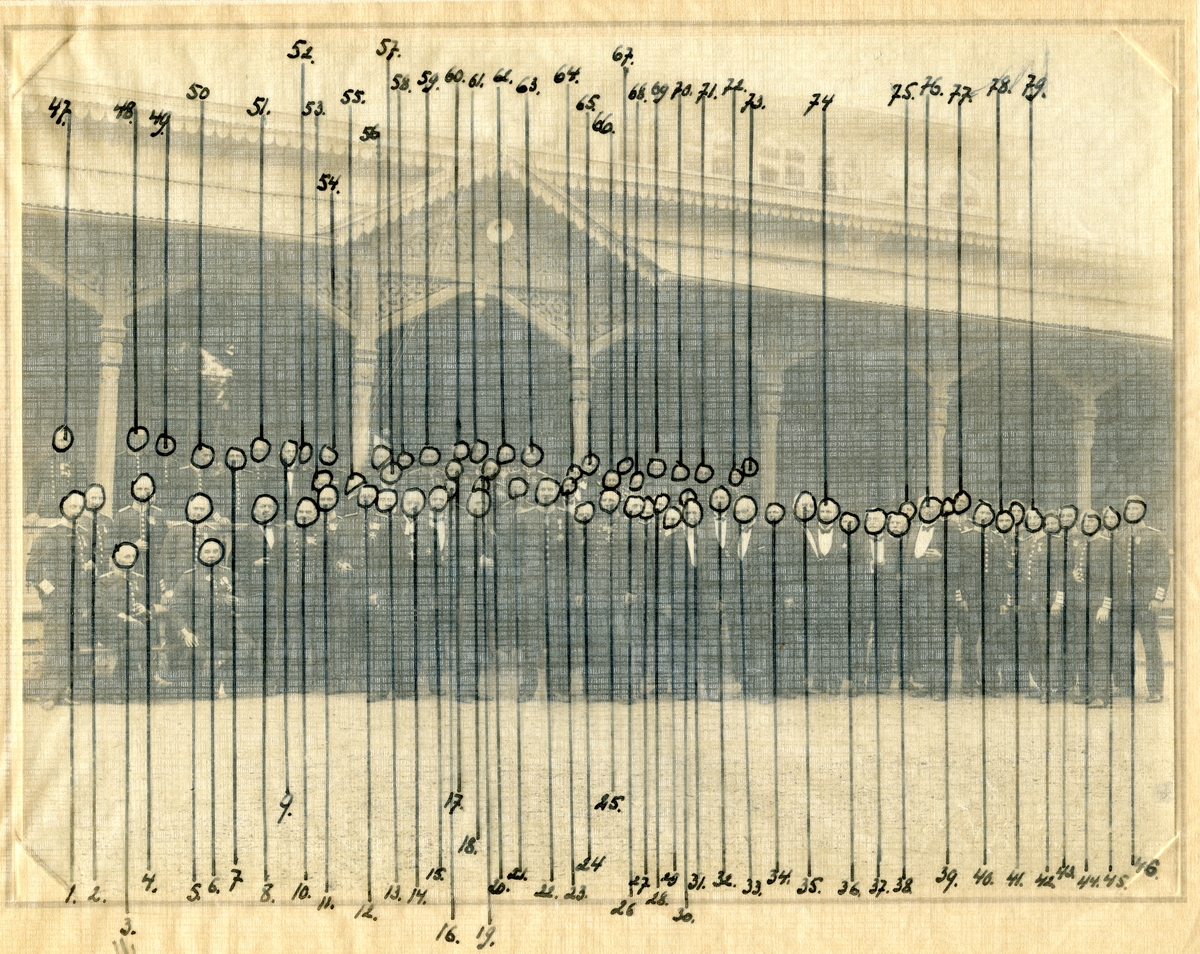 47. 48. 49. 50 51. 52. 53. 54. 55. 56 57. 58. 59. 60. 61. 62. 63. 64. 65. 66. 67. 68. 69 70. 71. 72. 73. 74 75. 76. 77. 78. 79.
1. 2. 3. 4. 5. 6. 7 8. 9. 10. 11. 12. 13. 14. 15. 16. 17. 18. 19. 20. 21. 22. 23. 24 25. 26 27. 28. 29 30. 31. 32. 33. 34. 35. 36. 37. 38. 39. 40. 41. 42 43. 44. 45. 46.